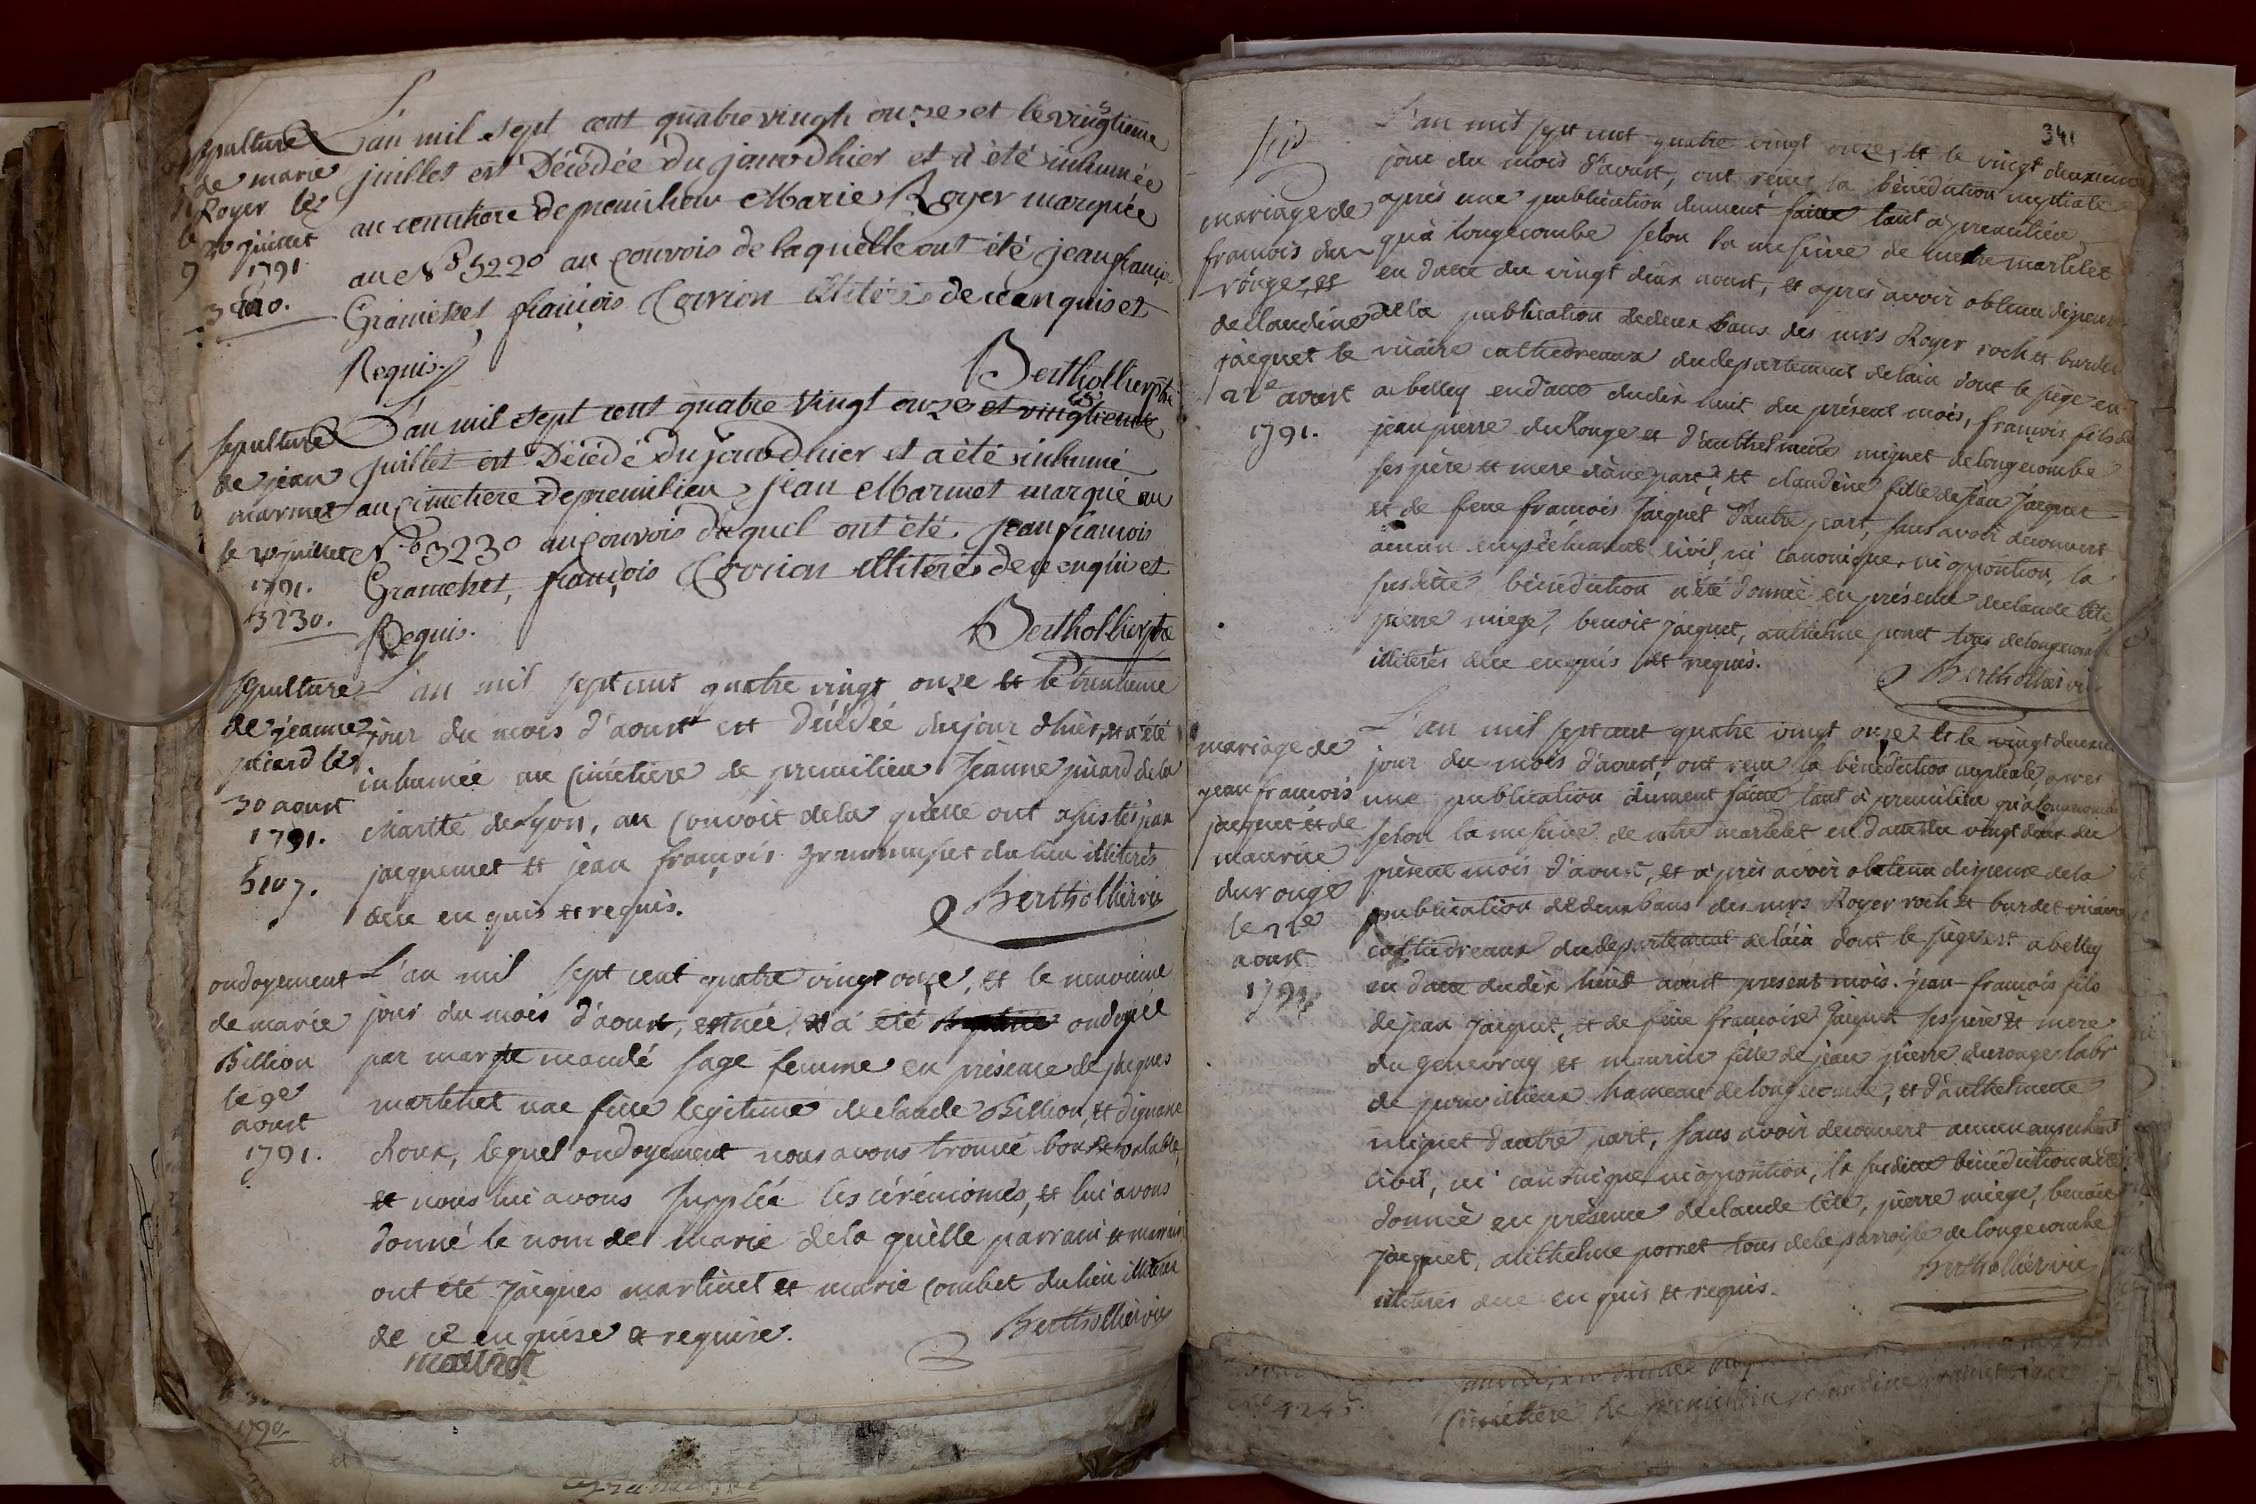 sepulture
de marie
Royer le
20 juillet
1791.
L'an mil sept cent quatre vingts onze et le vingtieme
juillet est Décédée du jour d'hier et à été inhumée
au cimetiere de premilieu Marie Royer marquée
au N° 5220 au convois de laquelle ont été jean françois
françois Corrion illitérés de ce enquis et
Requis.
Berthollier ptre
sepulture
de jean
marmet
le 20 juillet
1791.
3230.
L'an mil sept cent quatre vingt onze et vingtieme
juillet est Décédé du jour d'hier et a été inhumé
au cimetiere de premilieu jean Marmet marqué au
N° 3230 au convois duquel ont été jean françois
françois Corrion illitérés de ce enquis et
Requis.
Berthollier ptre
sepulture
de jeanne
picard le
30 aoust
1791.
5107.
L'an mil sept cent quatre vingt onze et le trentieme
jour du mois d'aoust est décédée du jour d'hier, et a été
inhumée au cimetiere de premilieu Jeanne picard de la
charité de Lyon, au convoit de la quelle ont assistés jean
jacquemet et jean françois du lieu illiterés
de ce enquis et requis.
Berthollier vic
ondoyement
de marie
Billion
le 9e
aoust
1791.
L'an mil sept cent quatre vingt onze, et le neuvieme
jour du mois d'aoust, est née, et a été ondoyée
par margte mandé sage femme en présence de jacques
martinet une fille legitime de claude Billion, et dignasse
roux, lequel ondoyement nous avons trouvé bon et valable,
et nous lui avons supplée les cérémonies, et lui avons
donné le nom de marie de la quelle parrain et marraine
ont été jacques martinet et marie Combet du lieu illiterés
de ce enquise et requise.
Berthollier vic
341
mariage de
francois du
rouge, et
de claudine
jacquet le
22e aoust
1791.
L'an mil sept cent quatre vingt onze, et le vingt deuxieme
jour du mois d'aoust, ont reçu la bénédiction nuptiale
après une publication dument faitte tant à premilieu
qu'à longecombe selon la mesure de martelet
en datte du vingt deux aoust, et après avoir obtenu dispense
de la publication de deux bans des mrs Royer roch et burdet
vicaire cathedreaux du departement de lain dont le siège en
a belley en datte du dix huit du présent mois, francois fils de
jean pierre du Rouge et d'anthelmette miguet de longecombe
ses père et mere d'une part, et claudine fille de Jean Jacquet
et de feue francois Jacquet d'autre part, sans avoir decouvert
aucun empéchement civil, ni canonique, ni opposition, la
susditte bénédiction a été donnée en présence de claude téte,
pierre miege, benoit jacquet, anthelme porret tous de longecombe
illiterés de ce enquis et requis.
Berthollier vic
mariage de
jean francois
jacquet et de
maurice
durouge
le 22e
aoust
1791
L'an mil sept cent quatre vingt onze, et le vingt deuxieme
jour du mois d'aoust, ont reçu la bénédiction nuptiale, apres
une publication dument faitte tant à premilieu qu'a longecombe
selon la mesure de martelet en datte du vingt deux du
présent mois d'aoust, et après avoir obtenu dispense de la
publication de deux bans des mrs Royer roch et burdet vicaire
cathedreaux du departement de lain dont le siège est a belley
en datte du dix huit aoust present mois. jean francois fils
de jean Jacquet, et de feue françoise Jacquet ses père et mere
du genevray et maurice fille de jean pierre durouge labr
de hameau de longecombe, et d'anthelmette
miguet d'autre part, sans avoir decouvert aucun empechement
civil, ni canonique ni opposition, la susditte bénédiction a été
donnée en présence de claude téte, pierre miege, benoit
jacquet, anthelme porret tous de la parroisse de longecombe
illiterés de ce enquis et requis.
Berthollier vic
1790
cimétiere de premilieu